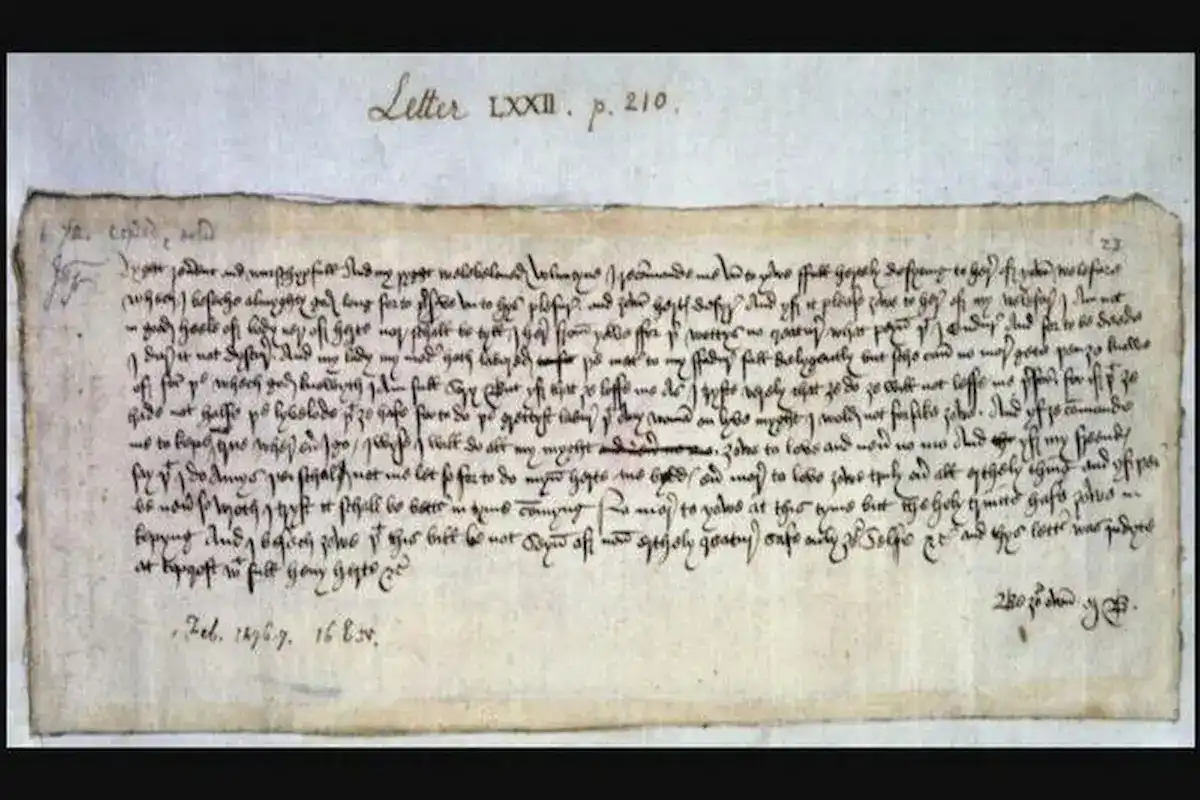 Letter LXXII. p. 210.
23
Ryght reuerent and wurschypfull And my ryght welebeloued Voluntyne I recomande me vn to yowe ffull hertely desyring to her off yowr welefare
whech I beseche almyghty god long for to preserve vn to hys plesur and yowr hertys desyre And yf it please yowe to her off my welefar I Am not
in good heele off body ner off herte nor schall be tyll I her from yowe ffor þer wottys no creatur what peyn þt I Endur And for to be deede
I dar it not dyscur And my lady my moder hath labored þe mater to my ffadur full delygently but sche can no mor gete þen ȝe knowe
off for þe whech god knowyth I Am full Sory But yf that ȝe loffe me As I tryste verely that ȝe do ȝe will not leffe me þerfor for if þt ȝe
hade not halfe þe lyvelode þt ȝe hafe for to do þe grettyst labur þt Any woman on lyve myght I wold not forsake ȝowe And yf ȝe comande
me to kepe me true wher euer I go I wyse I will do all my myght ȝowe to love and neuer no mo And yf my freendys
say þt I do Amys þei schal not me let so for to do myn herte me bydds euer mor to love ȝowe truly ouer all erthely thing and yf þei
be neuer so wroth I tryst it schall be better in tyme comyng No mor to yowe at this tyme but the holy trinite hafe ȝowe in
kepyng And I besech ȝowe þt this bill be not Seyn off non erthely creatur safe only ȝour Selfe &c and thys letter was jndyte
at topcroft wt full heuy herte &c
Be ȝour own M B.
Feb. 1476.7. 16 E. IV.